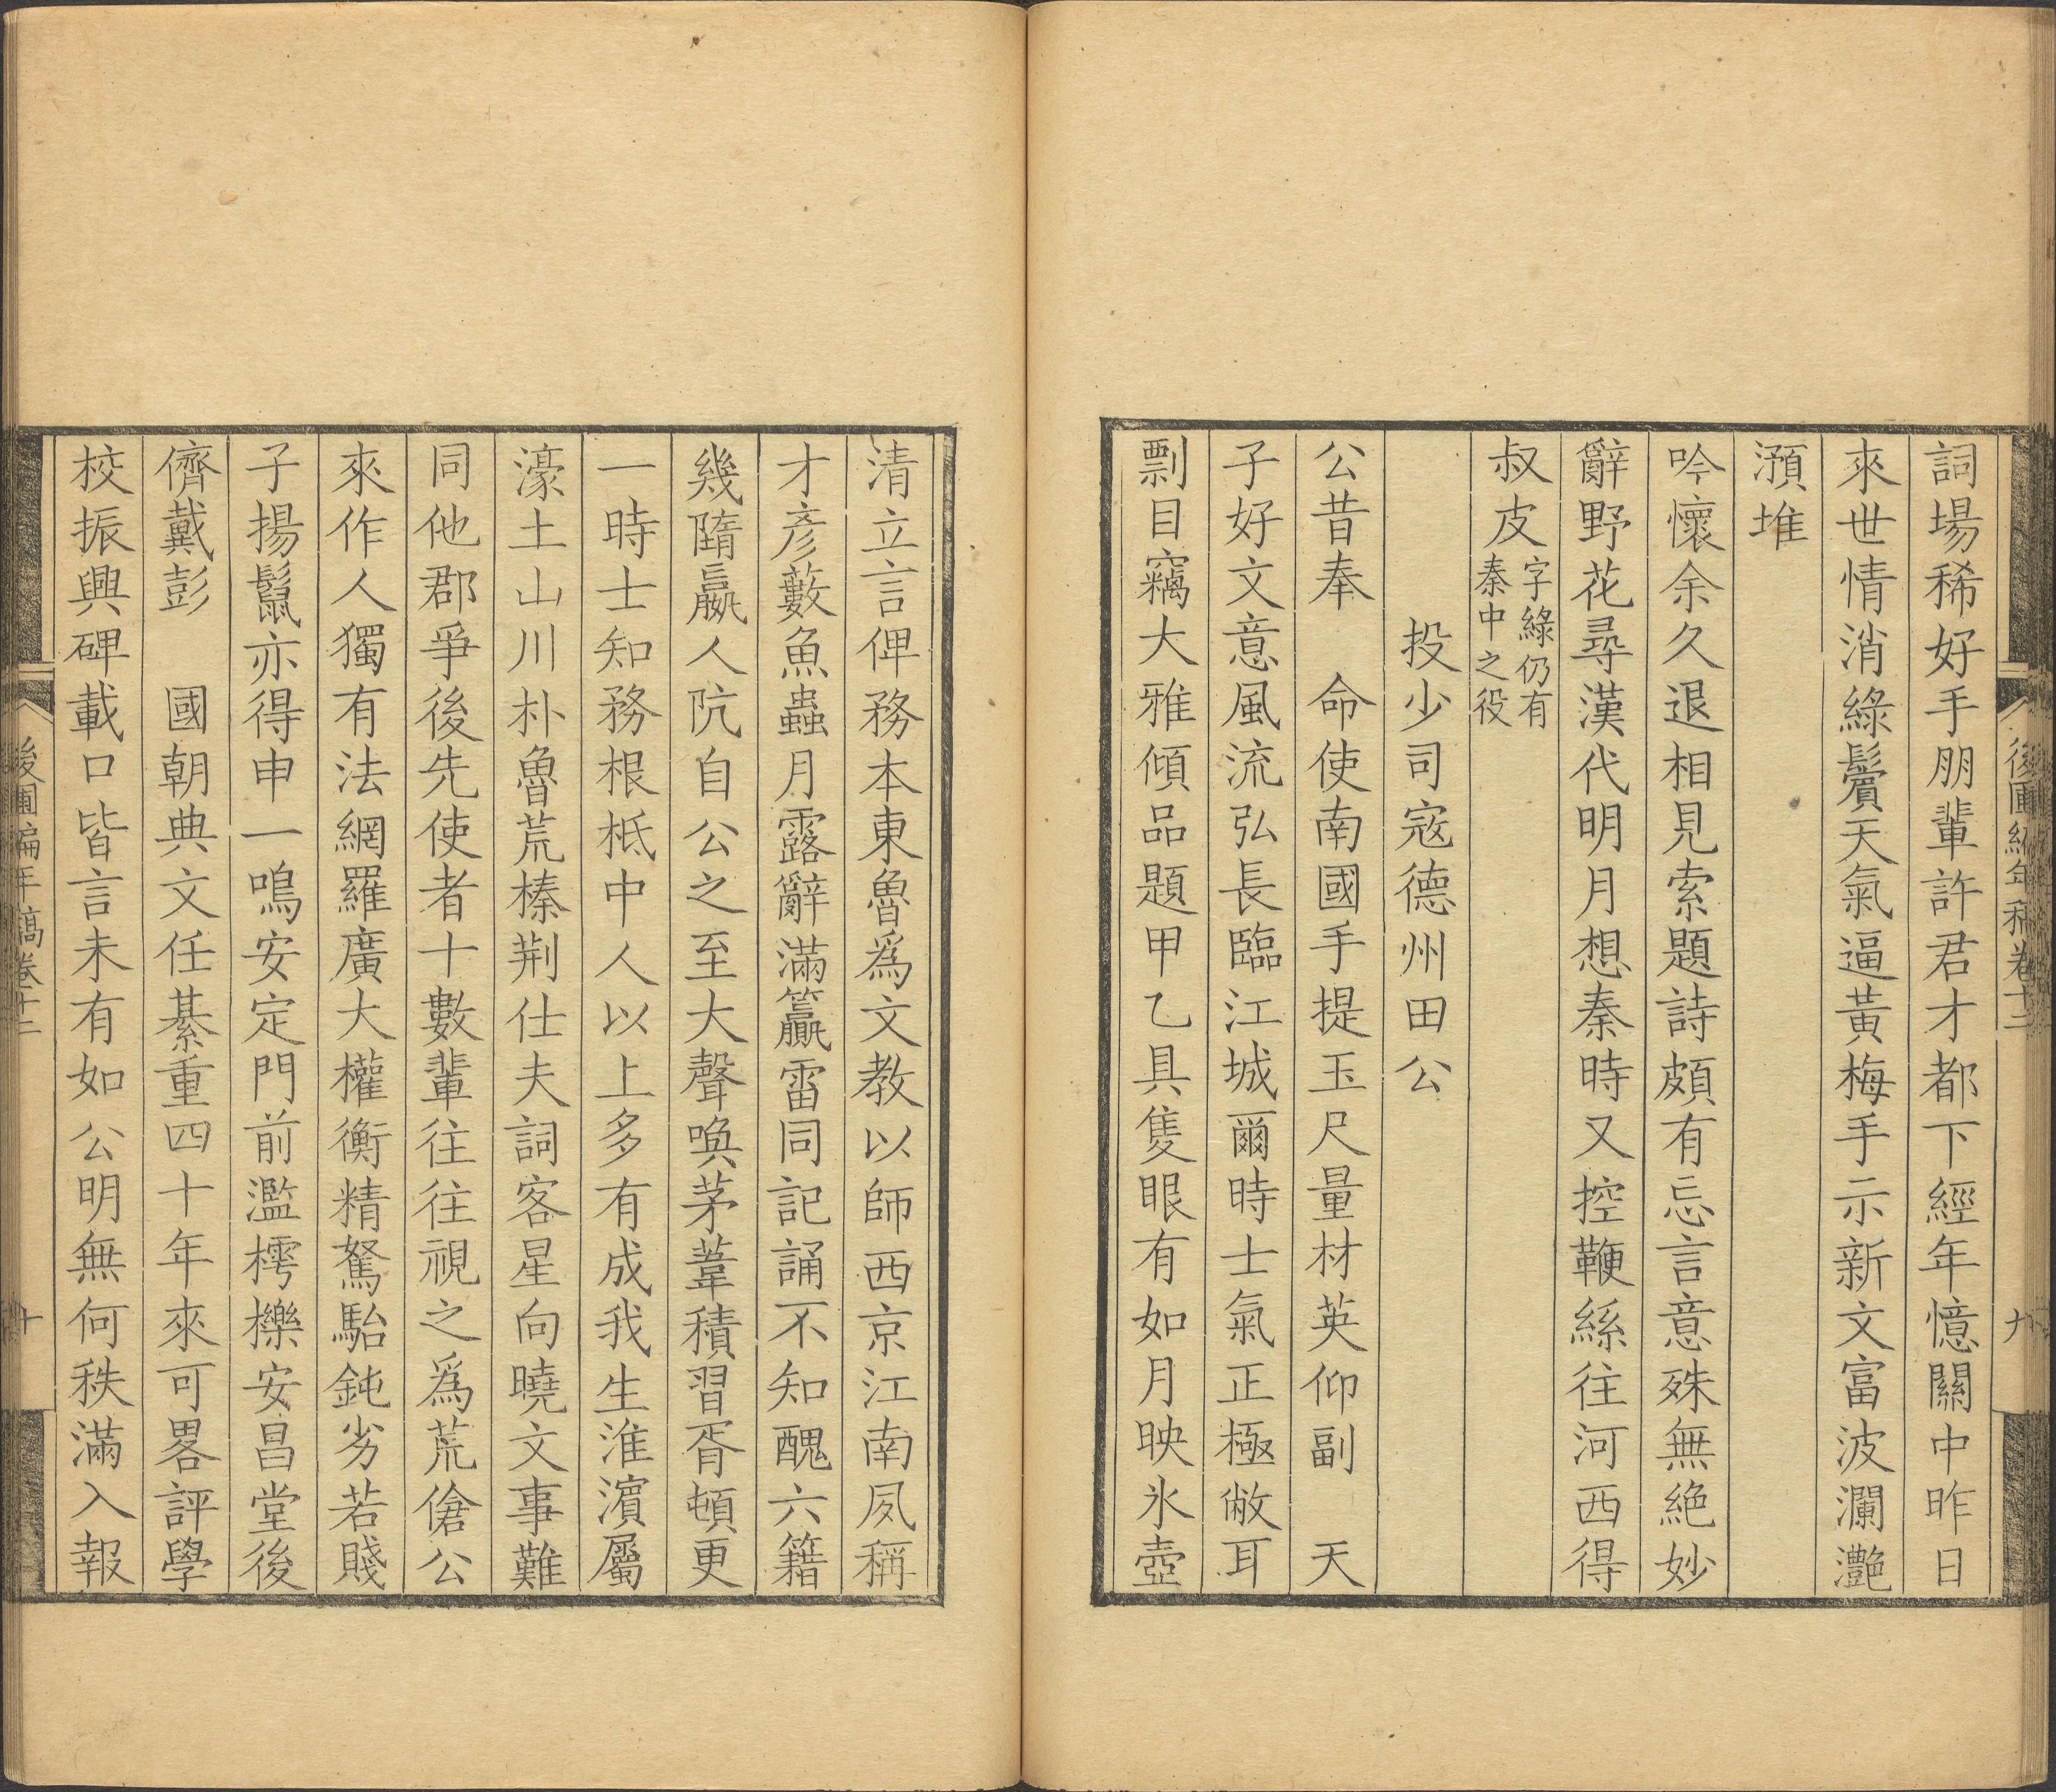 詞場稀好手朋輩許君才都下經年憶關中昨日
來世情消綠鬢天氣逼黃梅手示新文富波瀾灧
澦堆
吟懷余久退相見索題詩頗有忘言意殊無絕妙
辭野花尋漢代明月想秦時又控鞭絲往河西得
叔皮字綠仍有秦中之役
投少司寇德州田公
公昔奉 命使南國手提玉尺量材英仰副 天
子好文意風流弘長臨江城爾時士氣正極敝耳
剽目竊大雅傾品題甲乙具隻眼有如月映氷壺
後圃編年稿卷十二 九
清立言俾務本東魯爲文教以師西京江南夙稱
才彥藪魚蟲月露辭滿籯雷同記誦不知醜六籍
幾隨嬴人阬自公之至大聲喚茅葦積習胥頓更
一時士知務根柢中人以上多有成我生淮濵屬
濠土山川朴魯荒榛荆仕夫詞客星向曉文事難
同他郡爭後先使者十數輩往往視之爲荒傖公
來作人獨有法網羅廣大權衡精駑駘鈍劣若賤
子揚鬣亦得申一鳴安定門前濫樗櫟安昌堂後
儕戴彭 國朝典文任綦重四十年來可畧評學
校振興碑載口皆言未有如公明無何秩滿入報
後圃編年稿卷十二 十